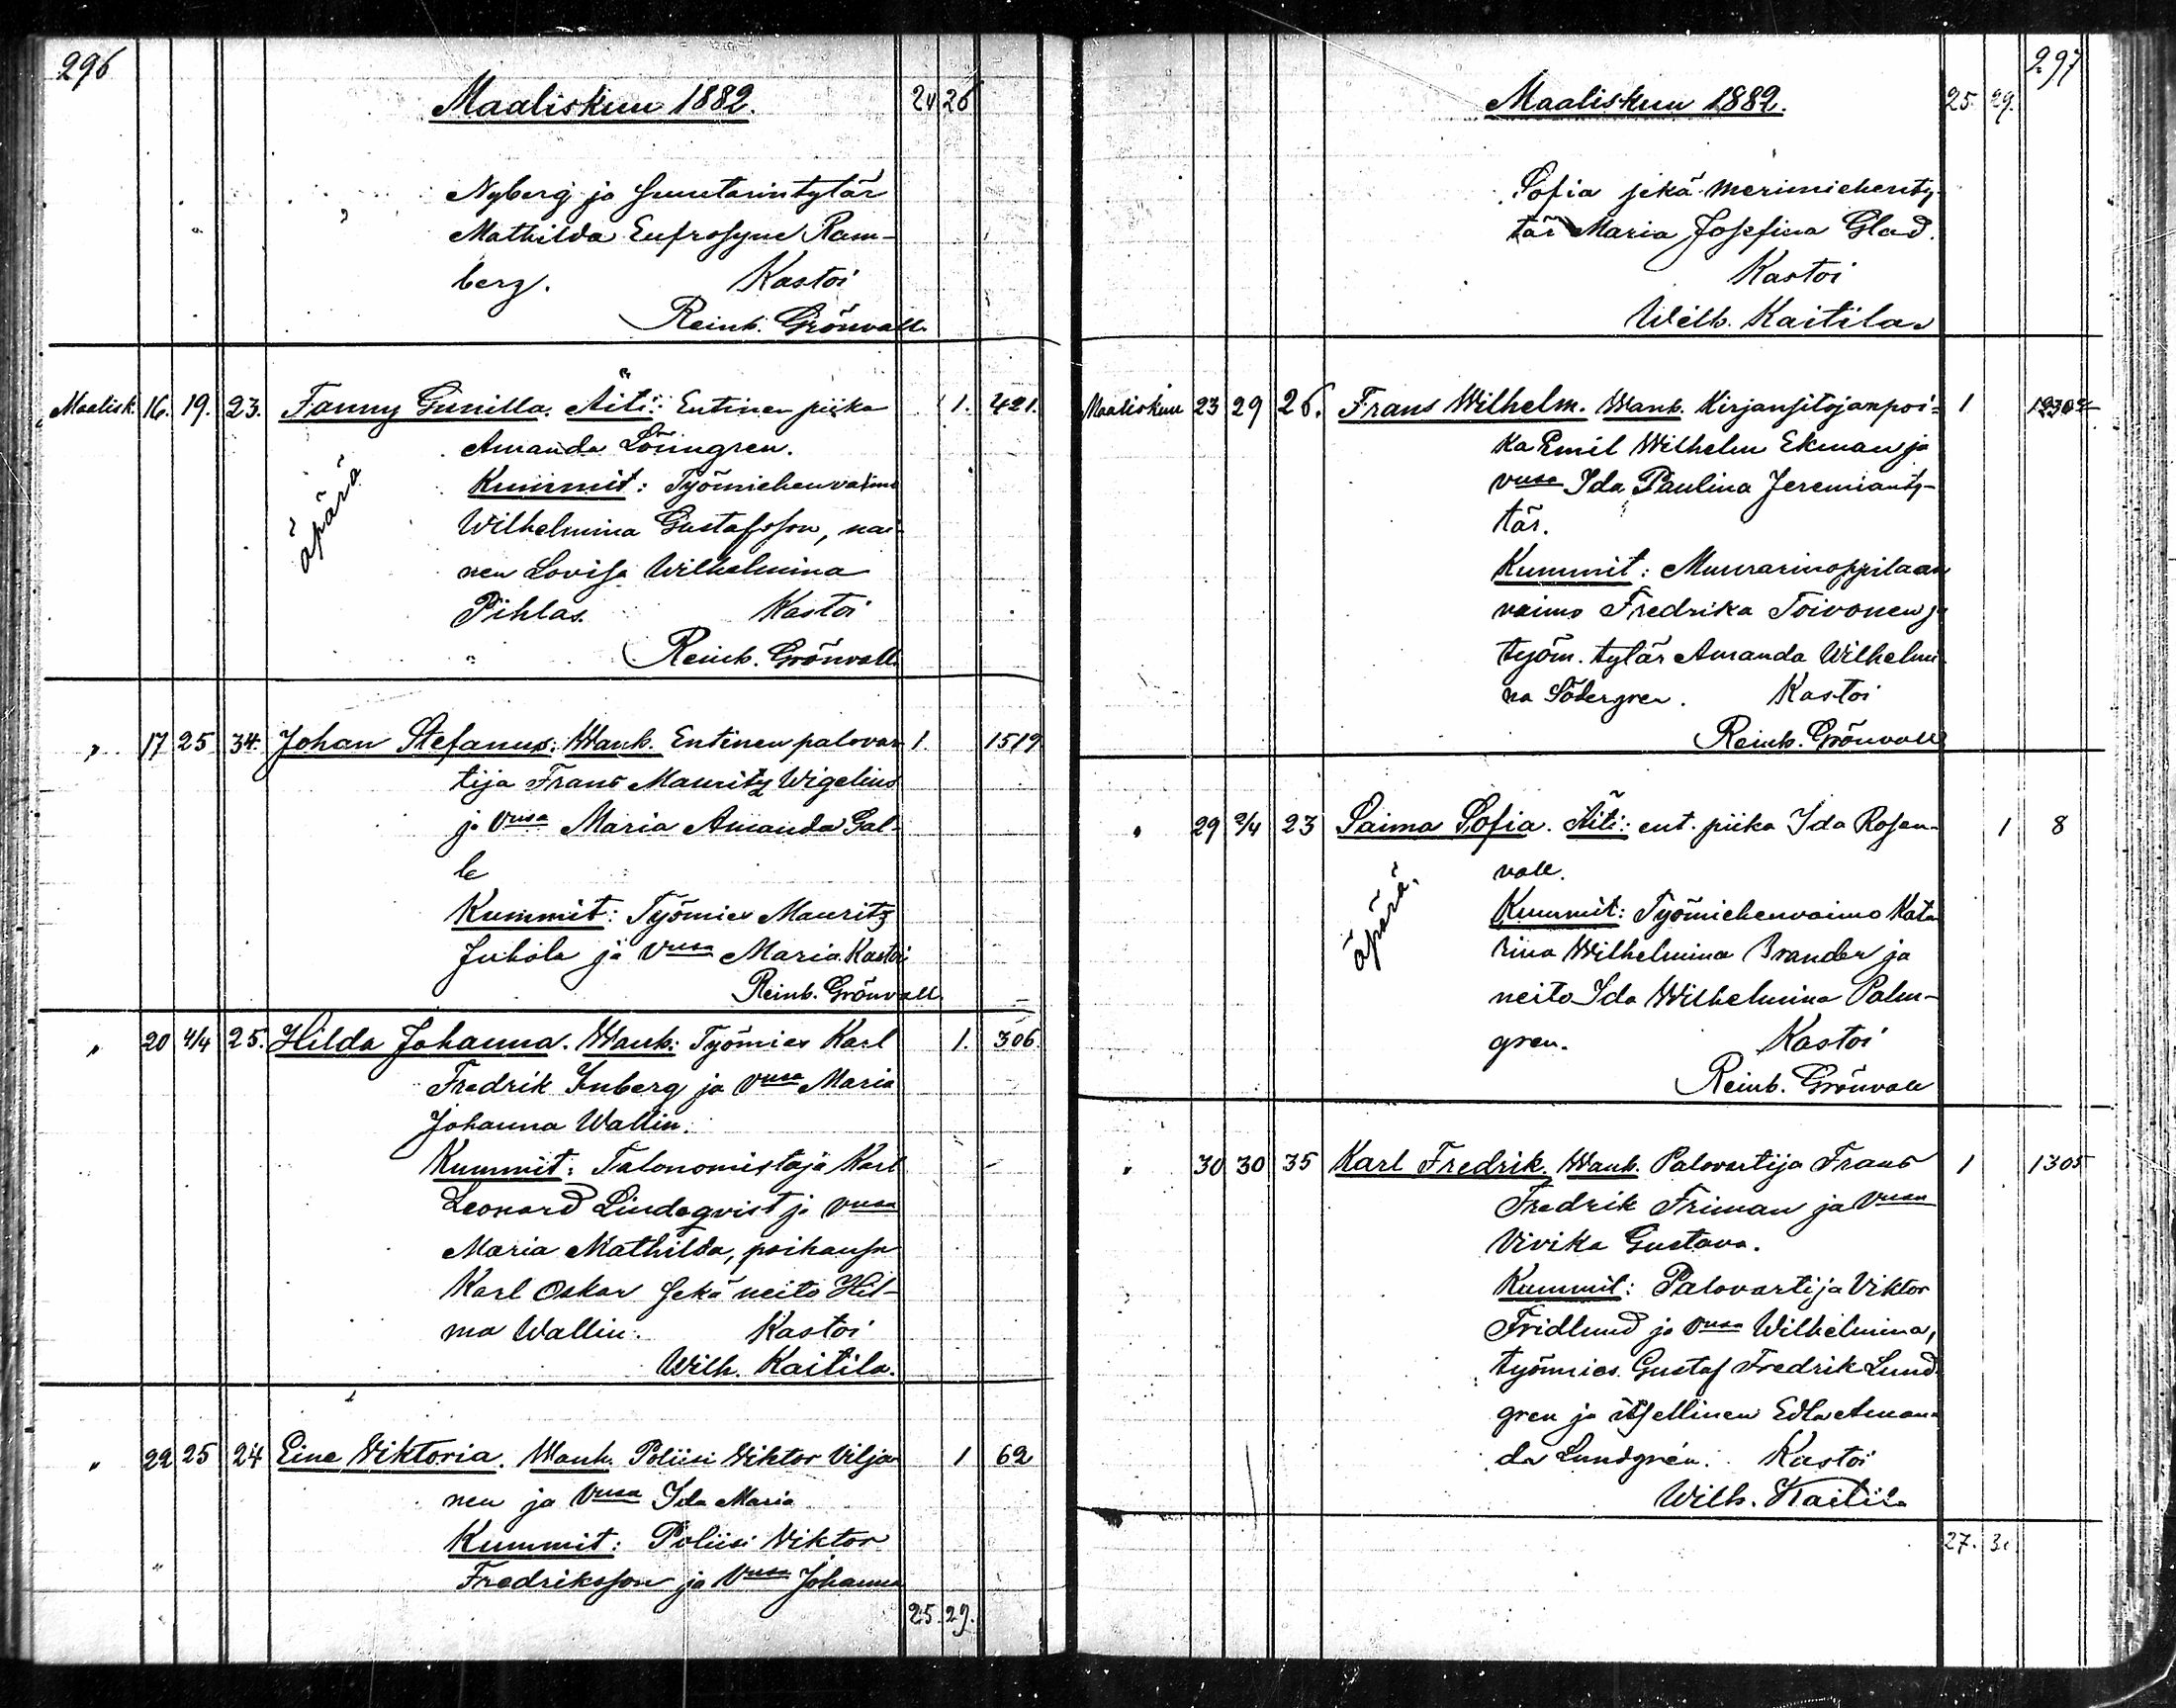 296
Maaliskuu 1882. 24 26
Nyberg ja suutarintytär
Mathilda Eufrosyne Ram-
berg. Kastoi
Reinh. Grönvall.
Maalisk. 16. 19. 23. Fanny Gunilla. Äiti: Entinen piika 1. 421.
Amanda Lönngren.
äpärä
Kummit: Työmiehenvaimo
Wilhelmina Gustafsson, nai-
nen Lovisa Wilhelmina
Pihlas. Kastoi
Reinh. Grönvall
" 17 25 34. Johan Stefanus. Wanh. Entinen palovar 1. 1519
tija Frans Mauritz Wigelius
ja Vnsa Maria Amanda Gal-
le
Kummit: Työmies Mauritz
Juhola ja Vnsa Maria. Kastoi
Reinh. Grönvall
" 20 4/4 25. Hilda Johanna. Wanh: Työmies Karl 1. 306.
Fredrik Inberg ja Vnsa Maria
Johanna Wallin.
Kummit: Talonomistaja Karl
Leonard Lindeqvist ja Vnsa
Maria Mathilda, poikansa
Karl Oskar sekä neito Hil-
ma Wallin. Kastoi
Wilh. Kaitila.
" 22 25 24 Eine Viktoria. Wanh. Poliisi Viktor Vilja- 1 62
nen ja Vnsa Ida Maria
Kummit: Poliisi Viktor
Fredriksson ja Vnsa Johanna
25. 29.
297
Maaliskuu 1882. 25. 29.
Sofia sekä merimiehenty-
tär Maria Josefina Glad.
Kastoi
Wilh. Kaitila
Maaliskuu 23 29 26. Frans Wilhelm. Wanh. Kirjansitojanpoi- 1
ka Emil Wilhelm Ekman ja
vnsa Ida Paulina Jeremianty-
tär.
Kummit: Muurarinoppilaan
vaimo Fredrika Toivonen ja
työm. tytär Amanda Wilhelmi-
na Södergren. Kastoi
Reinh. Grönvall
" 29 2/4 23 Saima Sofia. Äiti: ent. piika Ida Rosen- 1 8
vall.
äpärä.
Kummit: Työmiehenvaimo Kata
rina Wilhelmina Brander ja
neito Ida Wilhelmina Palm-
gren. Kastoi
Reinh. Grönvall
" 30 30 35 Karl Fredrik. Wanh. Palovartija Frans 1 1305
Fredrik Friman ja Vnsa
Vivika Gustava.
Kummit: Palovartija Viktor
Fridlund ja Vnsa Wilhelmina,
työmies Gustaf Fredrik Lund-
gren ja itsellinen Edla Aman-
da Lundgrén. Kastoi
Wilh. Kaitila
27. 30